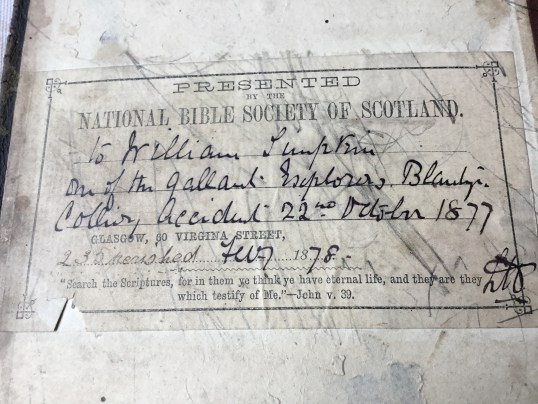 PRESENTED
BY THE
NATIONAL BIBLE SOCIETY OF SCOTLAND.
to William
one of the gallant Explorers Blantyre
Colliery Accident 22nd October 1877
GLASGOW, 60 VIRGINIA STREET,
Feby 1878.
"Search the Scriptures, for in them ye think ye have eternal life, and they are they
which testify of Me."—John v. 39.